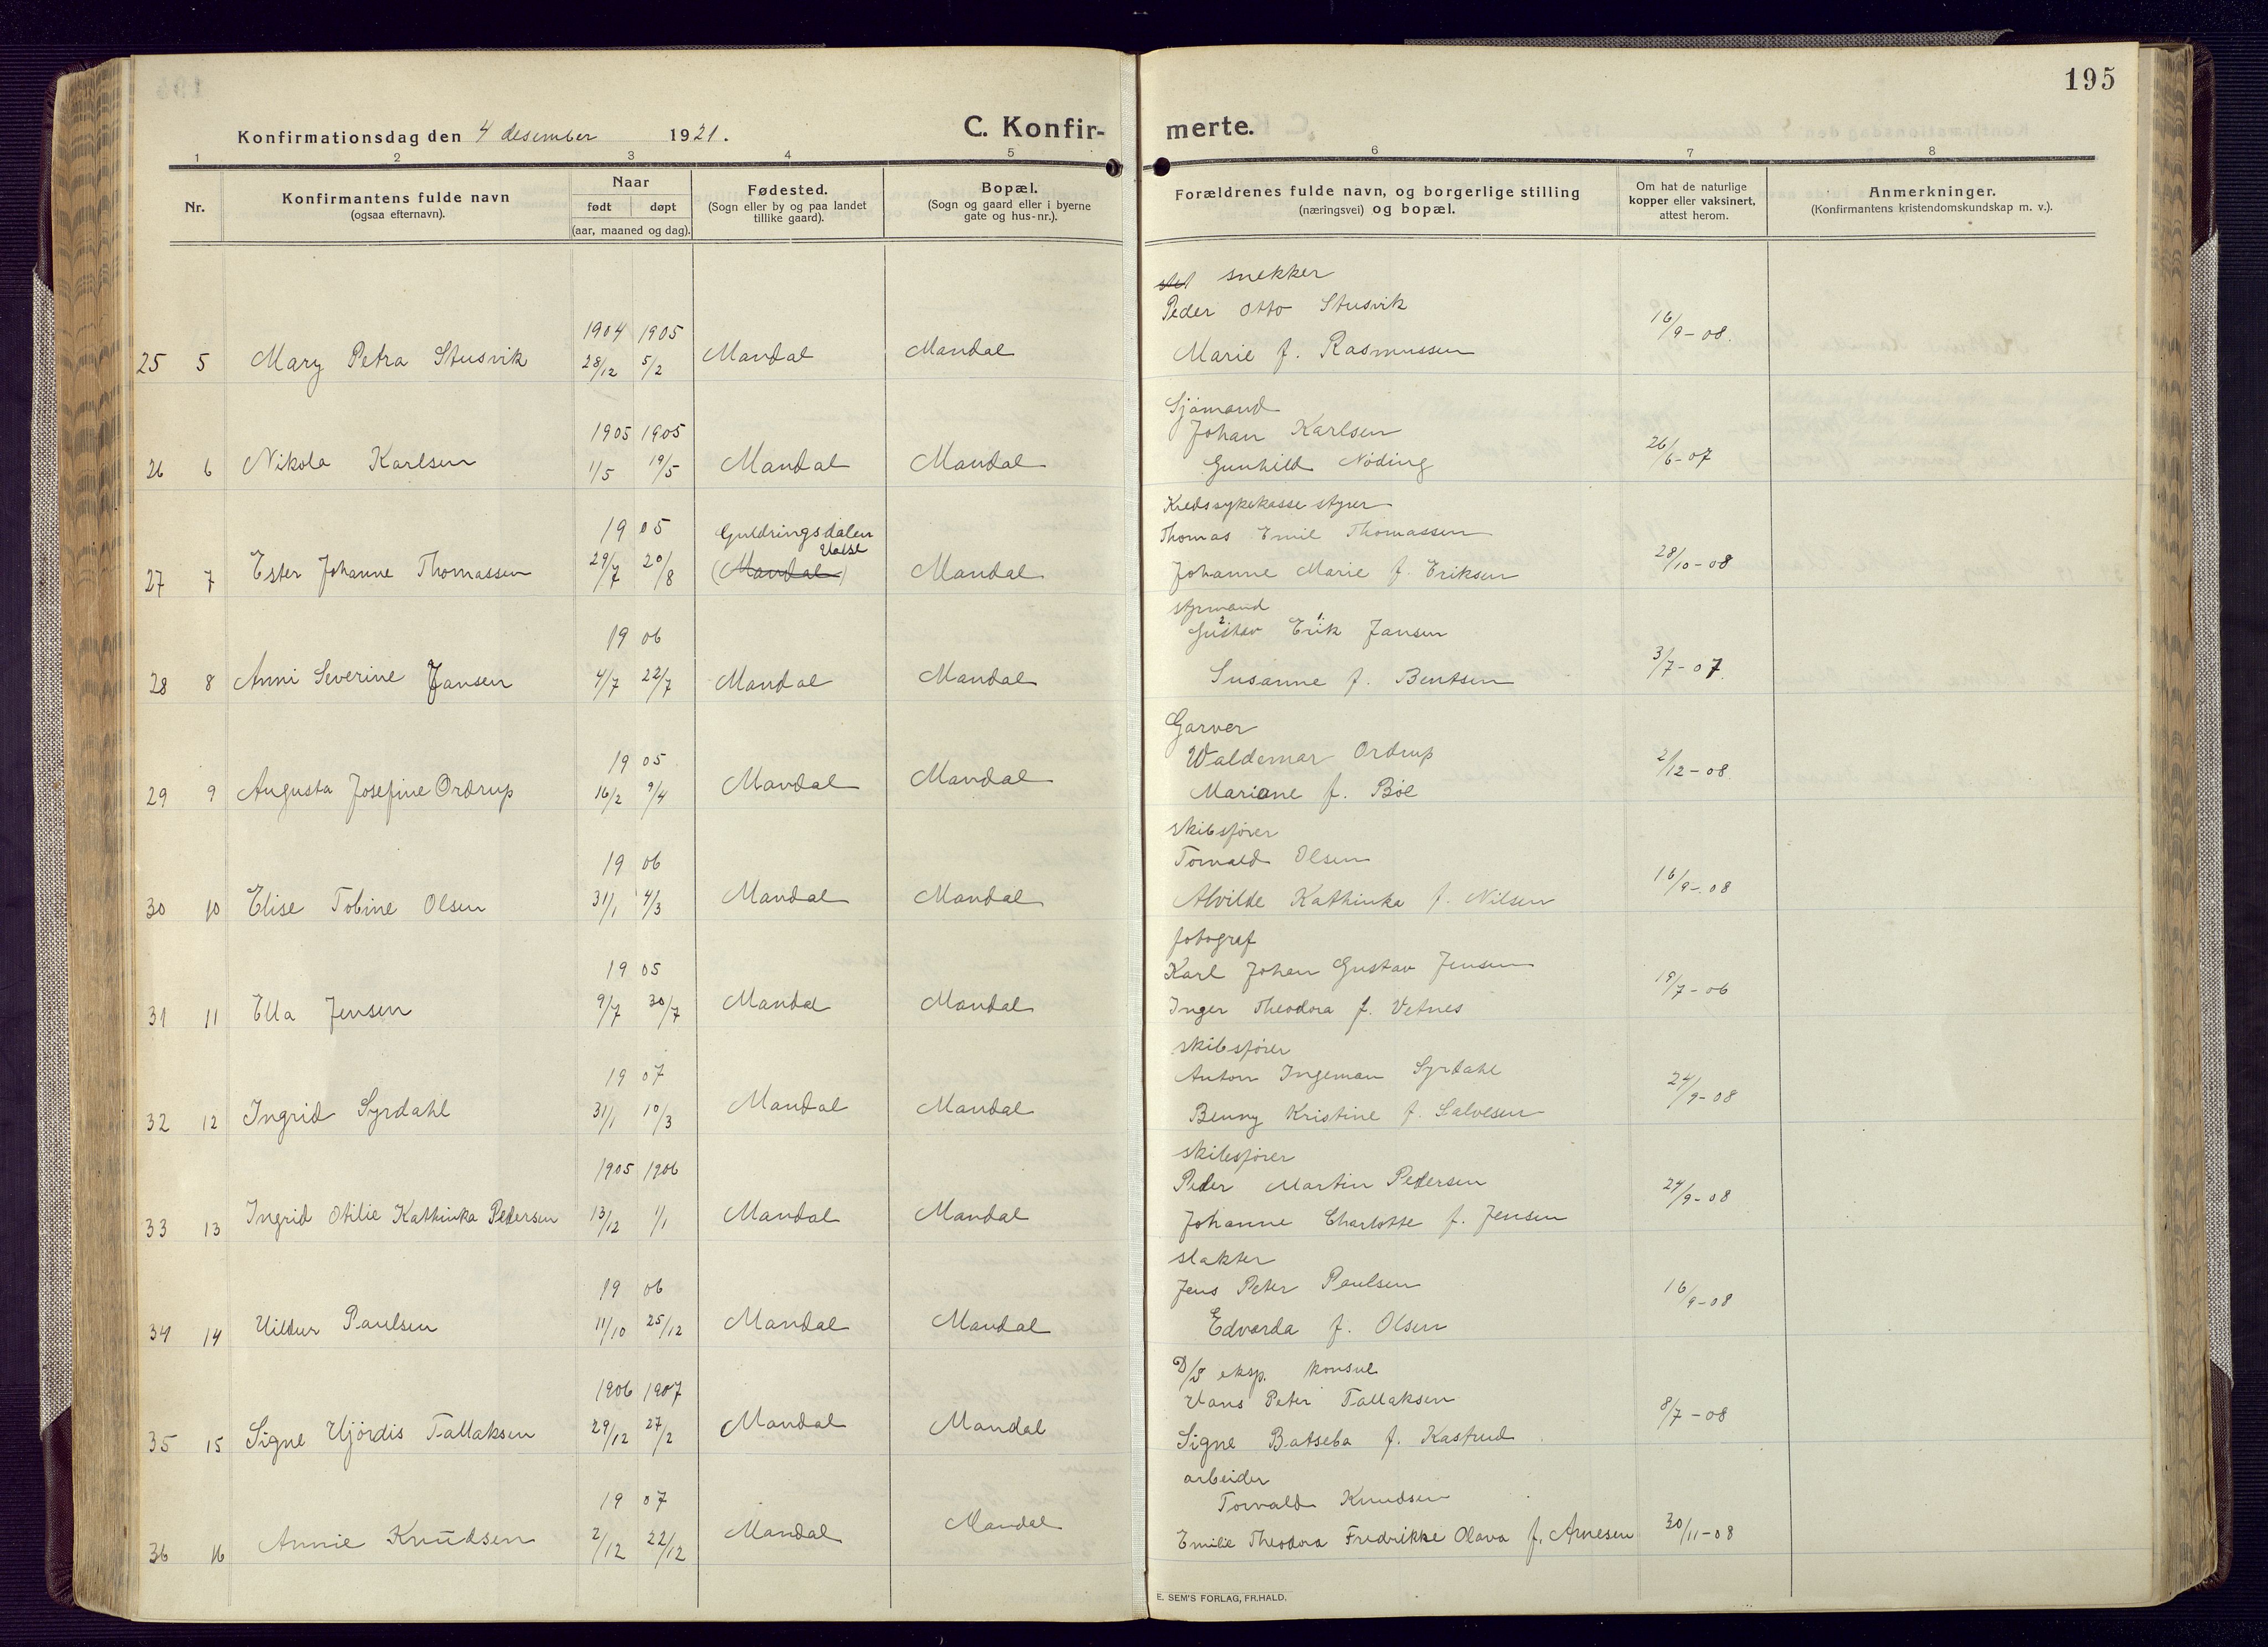 195
Konfirmationsdag den 4 desember 1921.
C. Konfir- merte.
1 2 3 4 5 6 7 8
Nr.
Konfirmantens fulde navn
(ogsaa efternavn).
Naar
født døpt
(aar, maaned og dag).
Fødested.
(Sogn eller by og paa landet
tillike gaard).
Bopæl.
(Sogn og gaard eller i byerne
gate og hus-nr.).
Forældrenes fulde navn, og borgerlige stilling
(næringsvei) og bopæl.
Om hat de naturlige
kopper eller vaksinert,
attest herom.
Anmerkninger.
(Konfirmantens kristendomskundskap m. v.).
snekker
Peder Otto Stusvik
1904 1905
25 5 Mary Petra Stusvik 28/12 5/2 Mandal Mandal Marie f. Rasmussen 16/9-08.
Sjømand
1905 1905 Johan Karlsen
26 6 Nikola Karlsen 1/5 19/5 Mandal Mandal Gunhild Nøding 26/6-07
Kredssykekasse styrer
19 05 Guldringsdalen Thomas Emil Thomassen
27 7 Ester Johanne Thomassen 29/7 20/8 (Mandal) Mandal Johanne Marie f. Eriksen 28/10-08
styrmand
19 06 Gustav 2. Erik 1. Jansen
28 8 Anni Severine Jansen 4/7 22/7 Mandal Mandal Susanne f. Bentsen 3/7-07.
Garver
19 05 Waldemar Ordrup
29 9 Augusta Josefine Ordrup 16/2 9/4 Mandal Mandal Mariane f. Bøe 2/12-08.
skibsfører
19 06 Torvald Olsen
30 10 Elise Tobine Olsen 31/1 4/3 Mandal Mandal Alvilde Kathinka f. Nilsen 16/9-08
fotograf
19 05 Karl Johan Gustav Jensen
31 11 Ella Jensen 9/7 30/7 Mandal Mandal Inger Theodora f. Vetnes 19/7-06
skibsfører
19 07 Anton Ingeman Syrdahl
32 12 Ingrid Syrdahl 31/1 10/3 Mandal Mandal Benny Kristine f. Salvesen 24/9-08
skibsfører
1905 1906 Peder Martin Pedersen
33 13 Ingrid Otilie Kathinka Pedersen 13/12 1/1 Mandal Mandal Johanne Charlotte f. Jensen 24/9-08
slakter
19 06 Jens Peter Paulsen
34 14 Hildur Paulsen 11/10 25/12 Mandal Mandal Edvarda f. Olsen 16/9-08
D/S eksp. konsul
1906 1907 Hans Peter Tallaksen
35 15 Signe Hjördis Tallaksen 29/12 27/2 Mandal Mandal Signe Batseba f. Kastrud 8/7-08
arbeider
19 07 Torvald Knudsen
36 16 Annie Knudsen 2/12 22/12 Mandal Mandal Emilie Theodora Fredrikke Olava f. Arnesen 30/11-08
E. SEM'S FORLAG, FR.HALD.